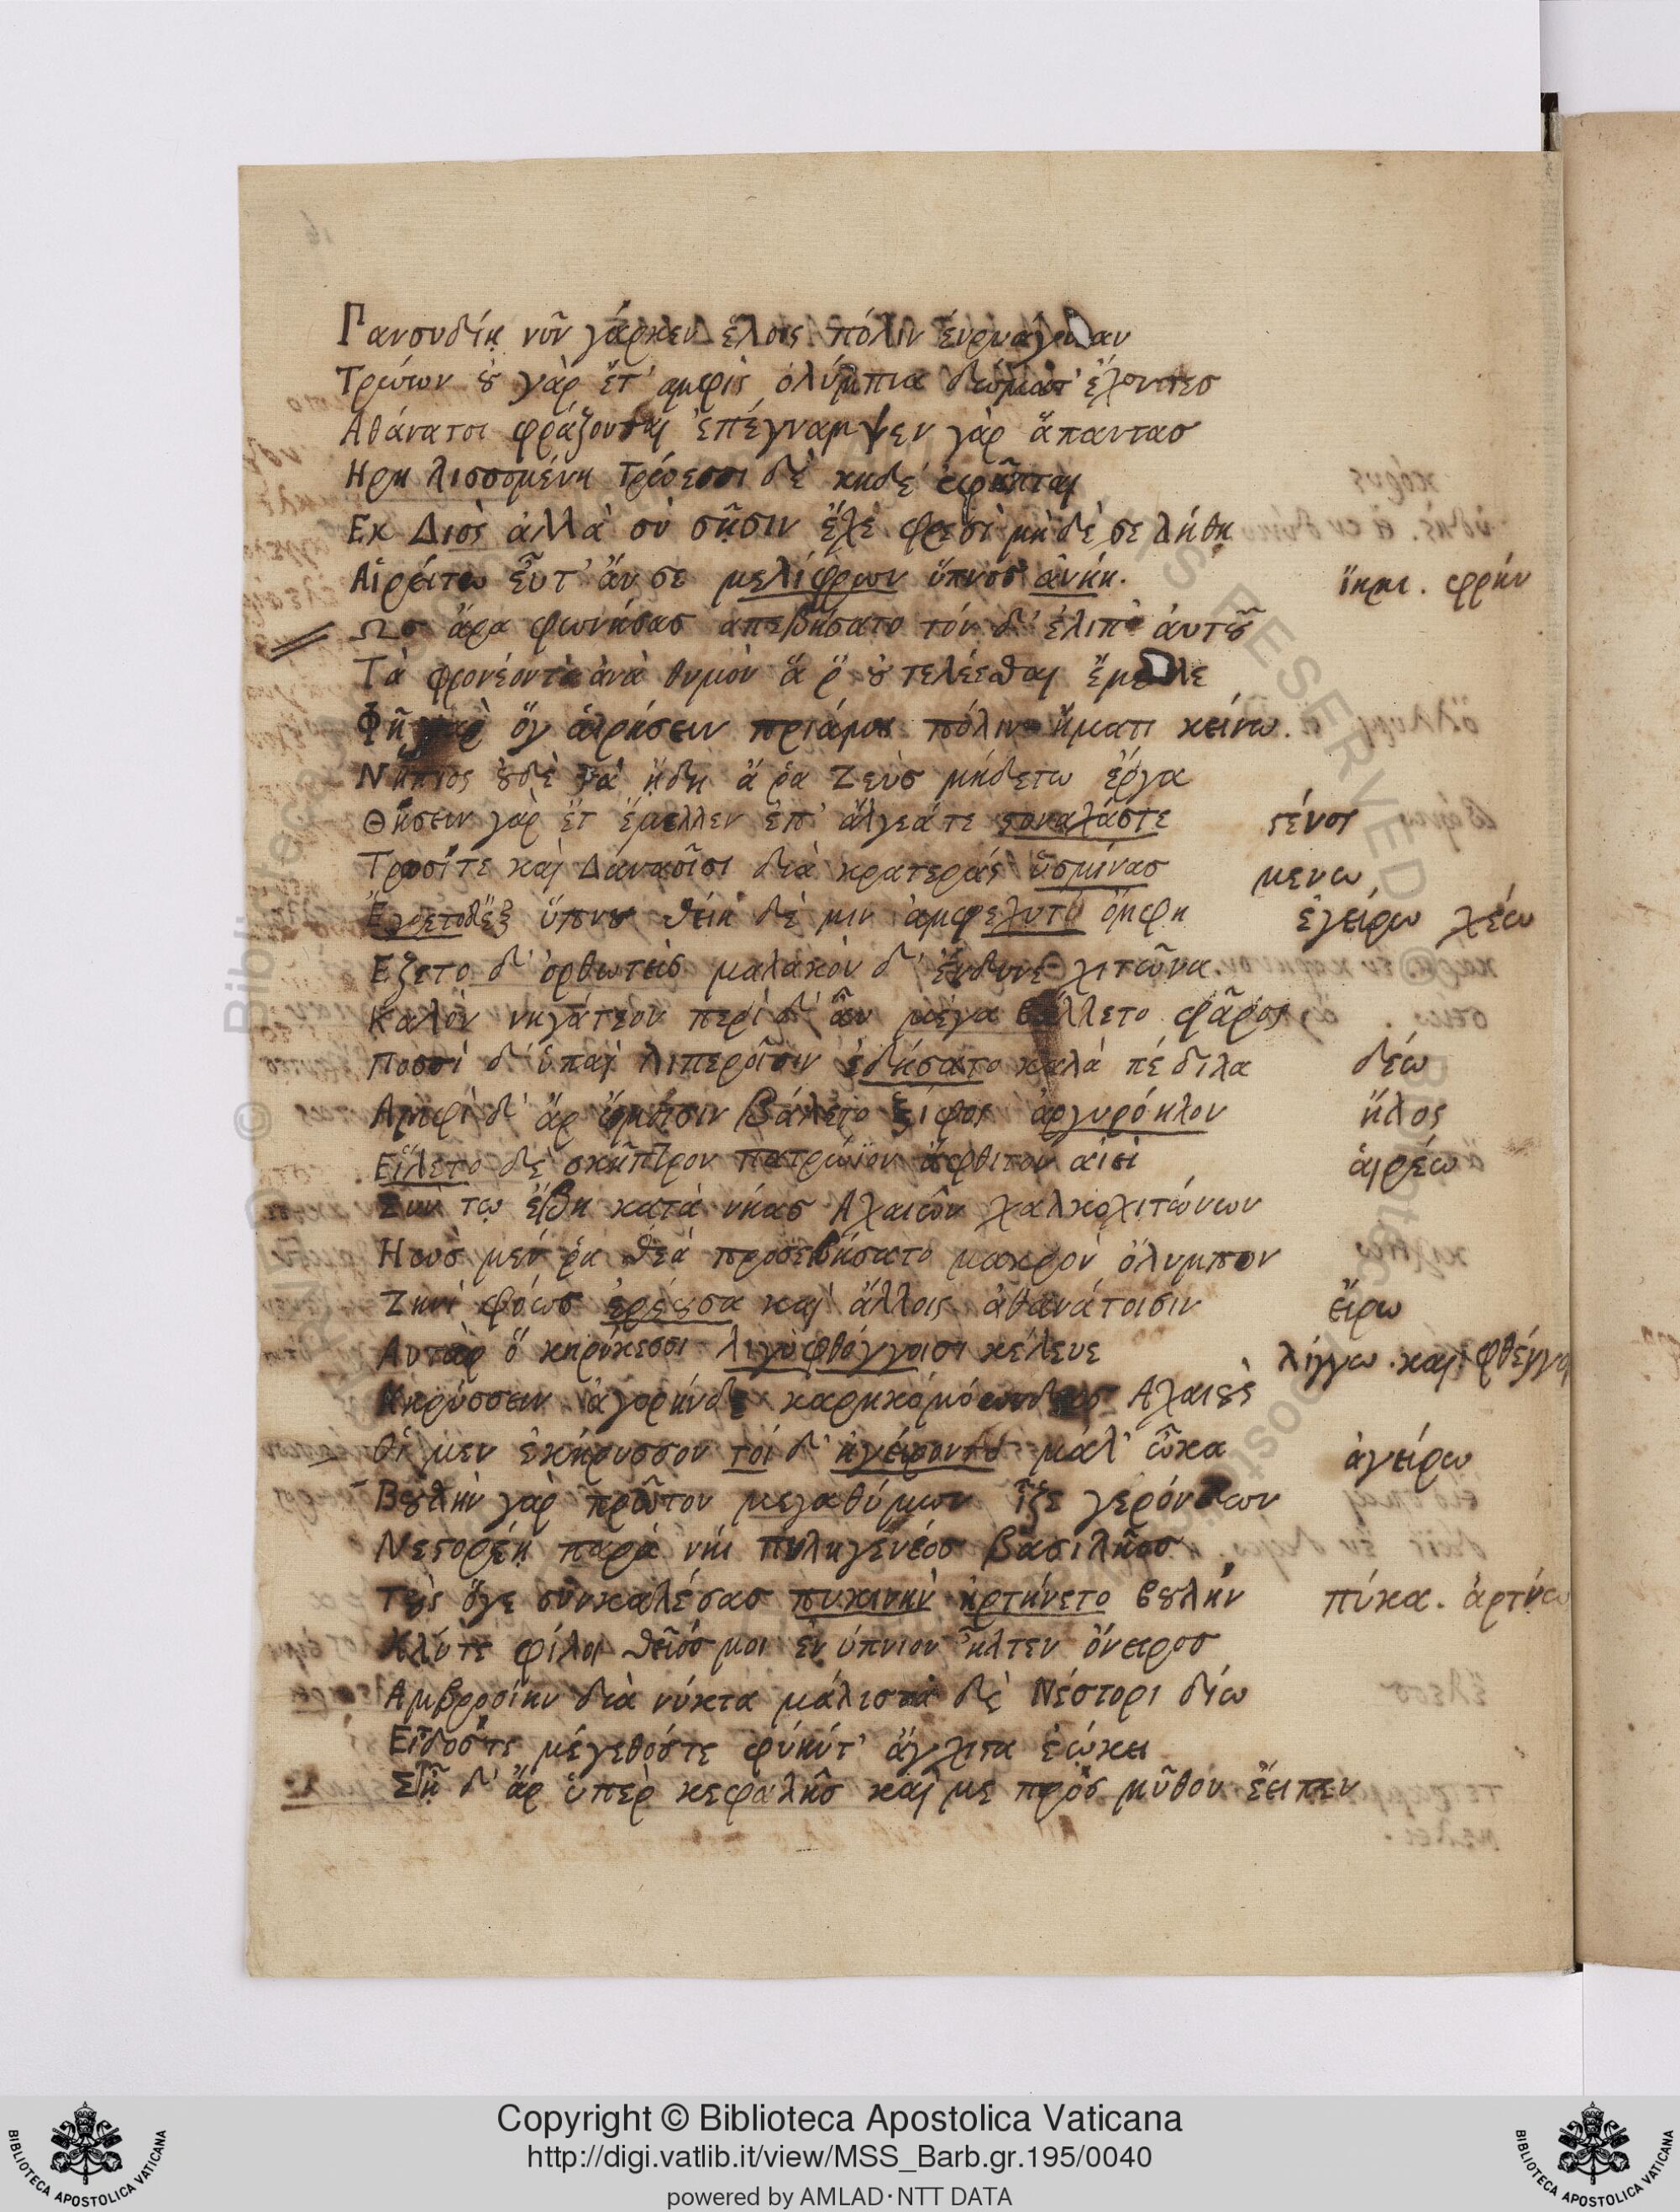 Γανσυδίῃ νῦν γάρκεν ἕλοις πόλιν ἐυρυάγυιαν
Τρώων ȣ γὰρ ἔτ' αμφὶς ὀλύμπια δώματ' ἔχοντεσ
Αθάνατοι φράζονται ἐπέγναμψεν γὰρ ἅπαντασ
Ηρη λισσομένη Τρώεσσι δὲ κηδέ εφῆπται
Εκ Διὸς ἀλλὰ σὺ σῆσιν ἔχε φρεσὶ μηδὲ σε λήθη
Αἱρείτω ἐῦτ' ἄν σε μελίφρων ὕπνοσ ἀνήη. ἵημι . φρήν
Ωσ ἄρα φωνήσασ ἀπεβήσατο τόν δ' ἔλιπ' ἀυτȣ͂
Τὰ φρονέοντα ἀνὰ θυμὸν ἅ ῥ' ȣ τελέεσθαι ἔμελλε
Φῆ γὰρ ὅγ' ἁιρήσειν πριάμȣ πόλιν ἤματι κείνω.
Νήπιος ȣδὲ τὰ ἤδη ἅ ῥα Ζεὺσ μήδετω ἔργα
Θήσειν γὰρ ἔτ' ἔμελλεν ἐπ' ἄλγεά τε στοναχάστε στένοι
Τρωσίτε καὶ Δαναοῖσι διὰ κρατερὰς ὑσμίνασ μενω
Έγρετοδέξ ὕπνȣ θείη δέ μιν ἀμφέχυτο ὀμφη ἐγείρω χέω
Εζετο δ' ὀρθωτεὶς μαλακὸν δ' ἔνδυνε χιτῶνα
Καλὸν νηγάτεον περὶ δ' ἂν μέγα βάλλετο φᾶρος
Ποσσὶ δ' ὑπαὶ λιπεροῖσιν ἐδήσατο καλὰ πέδιλα δέω
Αμφὶ δ' ἄρ ὤμοισιν βάλετο ξίφος ἀργυρόηλον ἧλος
Εἵλετο δὲ σκῆπτρον πατρώϊον ἄφθιτον αἰεὶ ἁιρέω
Σὺν τῳ ἔβη κατὰ νῆασ Αχαιῶν χαλκοχιτώνων
Ηωσ μέν ῥα θεὰ προσεβήσατο μακρὸν ὄλυμπον
Ζηνὶ φόωσ ἐρέȣσα καὶ ἄλλοις ἀθανάτοισιν εἴρω
Αυτὰρ ὅ κηρύκεσσι λιγυφθόγγοισι κέλευε λίγγω . καὶ φθέγγο
Κηρύσσειν ἀγορήνδε καρηκομόωντας Αχαιȣς
Οἱ μεν ἐκήρυσσον τοὶ δ' ἠγείροντο μάλ' ὦκα ἀγείρω
Βȣλὴν γὰρ πρῶτον μεγαθύμων ἷζε γερόντων
Νεστορέῃ παρὰ νηὶ πυληγενέοσ βασιλῆοσ
Τȣς ὅγε συνκαλέσασ πυκινὴν ἠρτήνετο βȣλὴν πύκα . ἀρτύω
Κλύτε φίλοι θεῖόσ μοι ἐν ύπνιον ἦλτεν ὄνειροσ
Αμβροσίην διὰ νύκτα μάλιστα δὲ Νέστορι δίω
Εἶδοστε μέγεθόστε φύηντ' ἄγχιστα ἐώκει
Στῆ δ' ἄρ ὑπὲρ κεφαλῆσ καί με πρὸσ μῦθον ἔειπεν
Copyright © Biblioteca Apostolica Vaticana
http://digi.vatlib.it/view/MSS_Barb.gr.195/0040
powered by AMLAD·NTT DATA
BIBLIOTECA APOSTOLICA VATICANA
BIBLIOTECA APOSTOLICA VATICANA